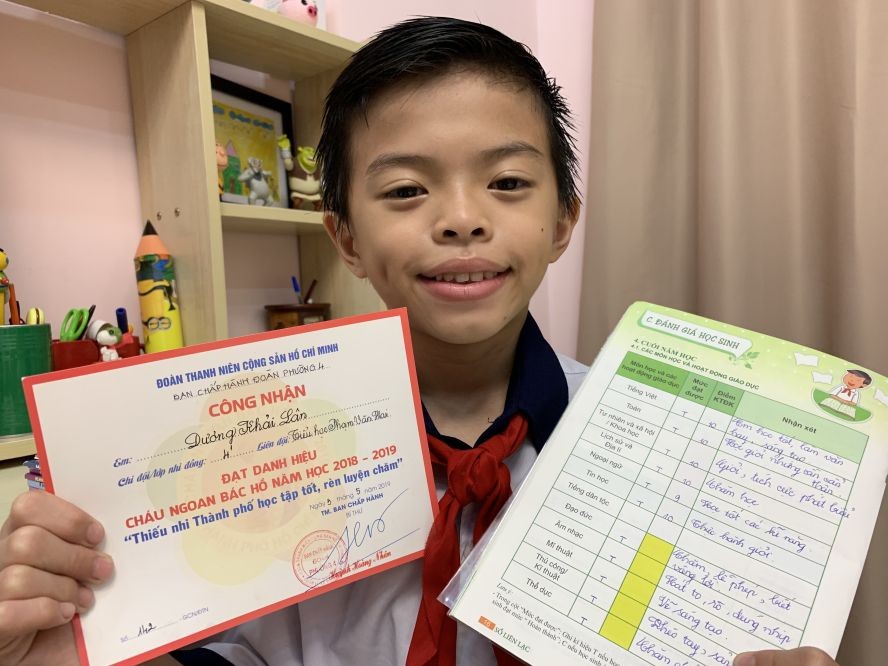 ĐOÀN THANH NIÊN CỘNG SẢN HỒ CHÍ MINH
BAN CHẤP HÀNH ĐOÀN PHƯỜNG 4
CÔNG NHẬN
Em: Dương Khải Lân
Chi đội/lớp nhi đồng: 4 Liên đội: Tiểu học Phạm Văn Hai
ĐẠT DANH HIỆU
CHÁU NGOAN BÁC HỒ NĂM HỌC 2018 - 2019
"Thiếu nhi Thành phố học tập tốt, rèn luyện chăm"
Ngày 3 tháng 5 năm 2019
TM. BAN CHẤP HÀNH
BÍ THƯ
Huỳnh Hoàng Nhân
Số 142 -GCN/ĐTN
C. ĐÁNH GIÁ HỌC SINH
4. CUỐI NĂM HỌC
4.1. CÁC MÔN HỌC VÀ HOẠT ĐỘNG GIÁO DỤC
Môn học và các hoạt động giáo dục Mức đạt được Điểm KTĐK Nhận xét
Tiếng Việt T 10 Em học tốt, làm văn hay, sáng tạo
Toán T 10 Học giỏi những văn toán
Tự nhiên và xã hội / Khoa học T 10 Giỏi, tích cực phát biểu
Lịch sử và Địa lí T 10 Chăm học
Ngoại ngữ T 9 Học tốt các kĩ năng
Tin học T 10 Thực hành giỏi
Tiếng dân tộc
Đạo đức T Chăm, lễ phép, biết vâng lời
Âm nhạc T Hát to, rõ, đúng nhịp
Mĩ thuật T Vẽ sáng tạo
Thủ công/ Kĩ thuật T Khéo tay
Thể dục T
Lưu ý:
- Trong cột "Mức đạt được": Ghi kí hiệu T nếu học
sinh đạt mức "Hoàn thành"; C nếu học sinh
SỔ LIÊN LẠC